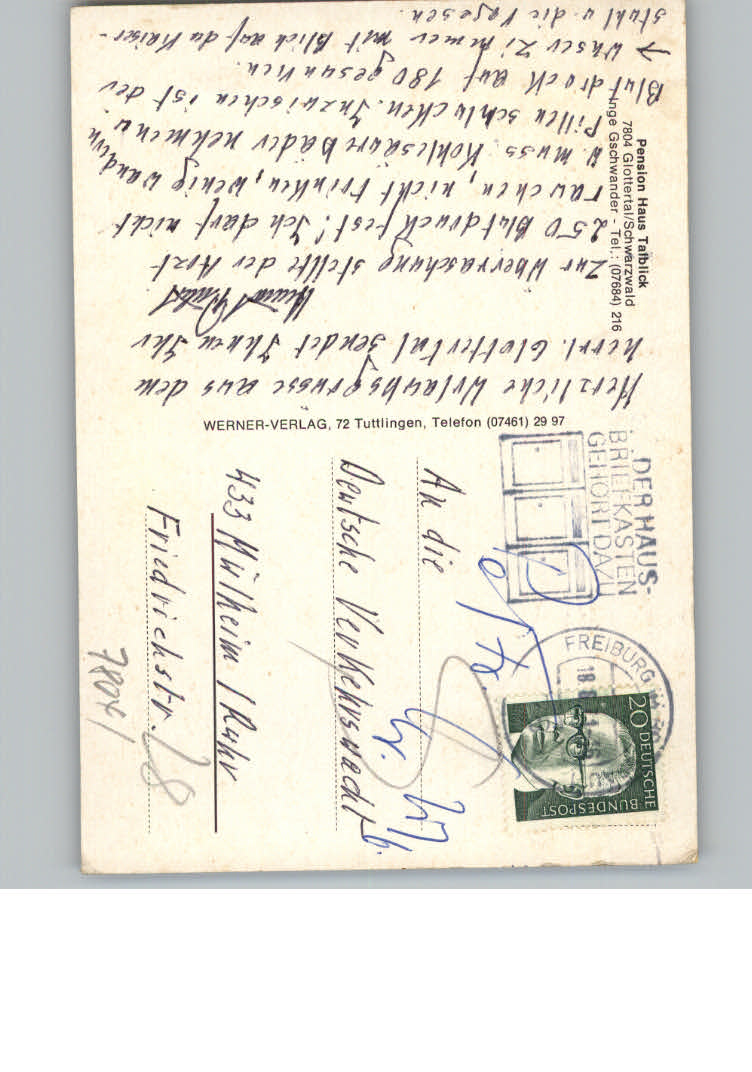 Pension Haus Talblick
7804 Glottertal/Schwarzwald
Inge Gschwander - Tel.: (07684) 216
Herzliche Urlaubsgrüsse aus dem
herrl. Glottertal sendet Ihnen Ihr
Zur Überraschung stellte der Arzt
250 Blutdruck fest! Ich darf nicht
rauchen, nicht trinken, wenig wandern
u. muss Kohlesäurebäder nehmen u.
Pillen schlucken. Inzwischen ist der
Blutdruck auf 180 gesunken.
→ Unser Zimmer mit Blick auf du Kaiser-
stuhl u. die Vogesen.
WERNER-VERLAG, 72 Tuttlingen, Telefon (07461) 29 97
DER HAUS-
BRIEFKASTEN
GEHÖRT DAZU
FREIBURG
18.
20 DEUTSCHE
BUNDESPOST
An die
Deutsche Verkehrswacht
433 Mülheim / Ruhr
Friedrichstr.
78
7804